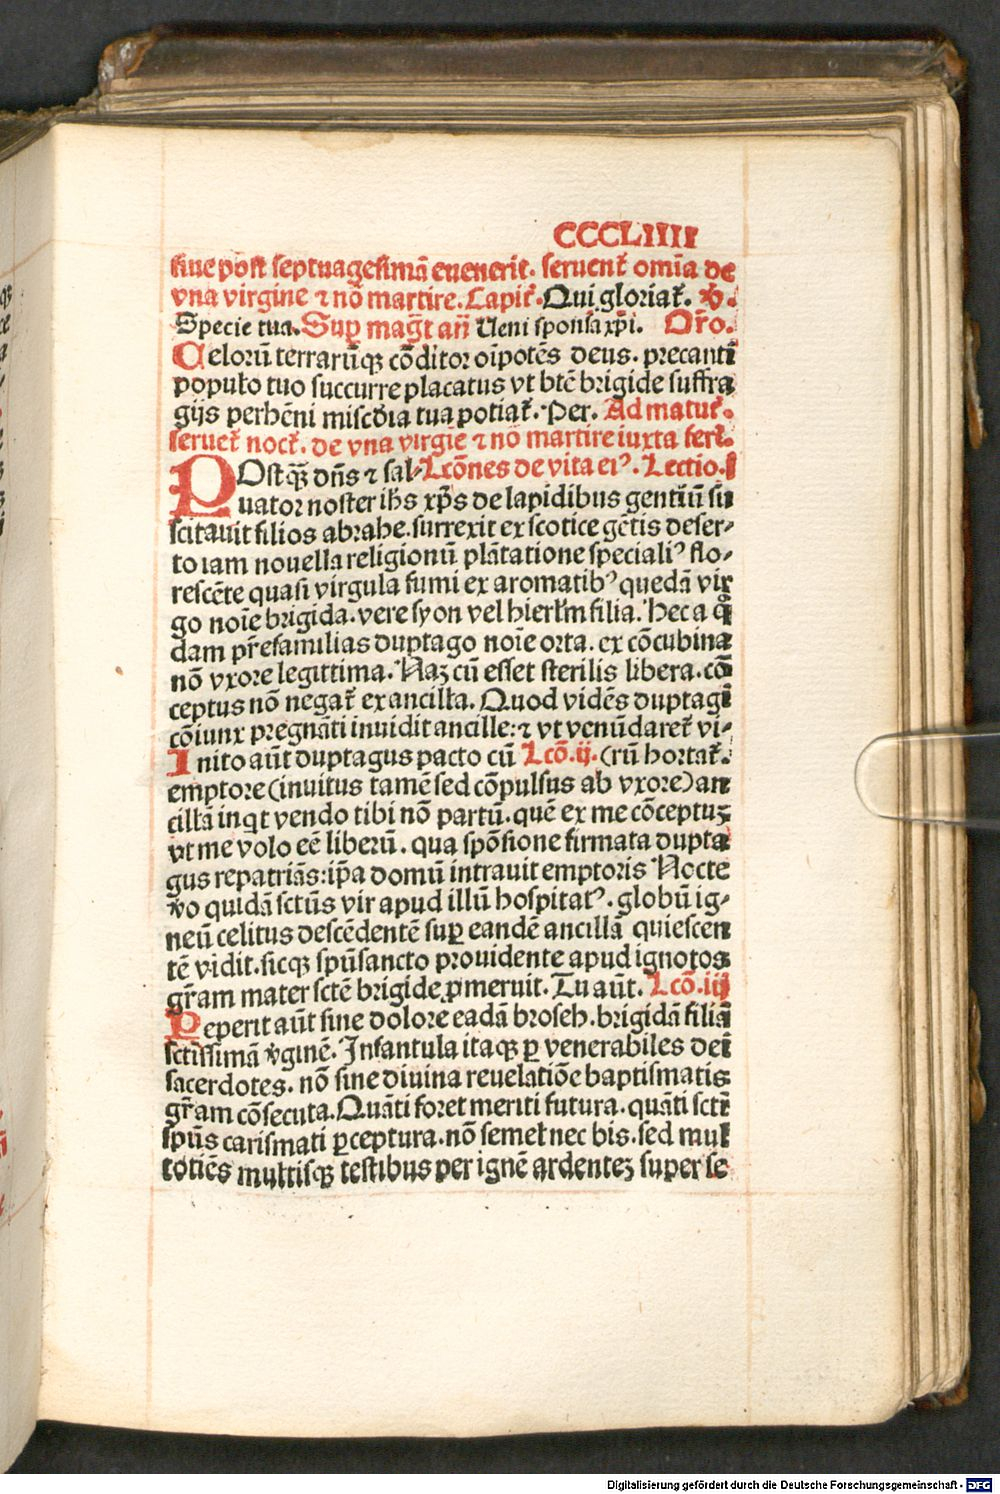 CCCLIIII
siue post septuagesimā euenerit. seruent̄ omīa de
vna virgine ⁊ nō martire. Capit̄. Qui gloriat̄. v̄.
Specie tua. Suꝑ mag̅t an̄ Ueni sponsa xp̄i. Or̄o.
Celorū terrarūqꝫ cōditor oīpotēs deus. precanti
populo tuo succurre placatus vt btē brigide suffra
gijs perhēni misc̄dia tua potiat̄. Per. Ad matut̄.
seruēt̄ noct̄. de vna virgīe ⁊ nō martire iuxta feri.
POstqꝫ̄ dn̄s ⁊ sal- Lcōnes de vita eiꝰ. Lectio. i
uator noster ih̄s xp̄s de lapidibus gentiū su
scitauit filios abrahe. surrexit ex scotice gētis deser-
to iam nouella religionū plātatione specialiꝰ flo-
rescēte quasi virgula fumi ex aromatibꝰ quedā vir
go noīe brigida. vere syon vel hierl̄m filia. Hec a q̄
dam pr̄efamilias duptago noīe orta. ex cōcubina
nō vxore legittima. Naꝫ cū esset sterilis libera. cō
ceptus nō negat̄ ex ancilla. Quod vidēs duptagi
cōiunx pregnāti inuidit ancille: ⁊ vt venūdaret̄ vi-
Inito aūt duptagus pacto cū Lcō. ij. (rū hortat̄.
emptore (inuitus tamē sed cōpulsus ab vxore) an
cillā inq̇t vendo tibi nō partū. quē ex me cōceptuꝫ
vt me volo eē liberū. qua spōsione firmata dupta
gus repatriās: ip̄a domū intrauit emptoris Nocte
v̄o quidā sctūs vir apud illū hospitatꝰ. globū ig-
neū celitus descēdentē suꝑ eandē ancillā quiescen
tē vidit. sicqꝫ sp̄usancto prouidente apud ignotos
gr̄am mater sctē brigide ꝓmeruit. Tu aūt. Lcō. iij
Peperit aūt sine dolore eadā broseh. brigidā filiā
sctissimā v̄ginē. Infantula itaqꝫ ꝑ venerabiles dei
sacerdotes. nō sine diuina reuelatiōe baptismatis
gr̄am cōsecuta. Quāti foret meriti futura. quāti sctī
sp̄us carismati ꝑceptura. nō semel nec bis. sed mul
totiēs multisqꝫ testibus per ignē ardenteꝫ super se
Digitalisierung gefördert durch die Deutsche Forschungsgemeinschaft - DFG